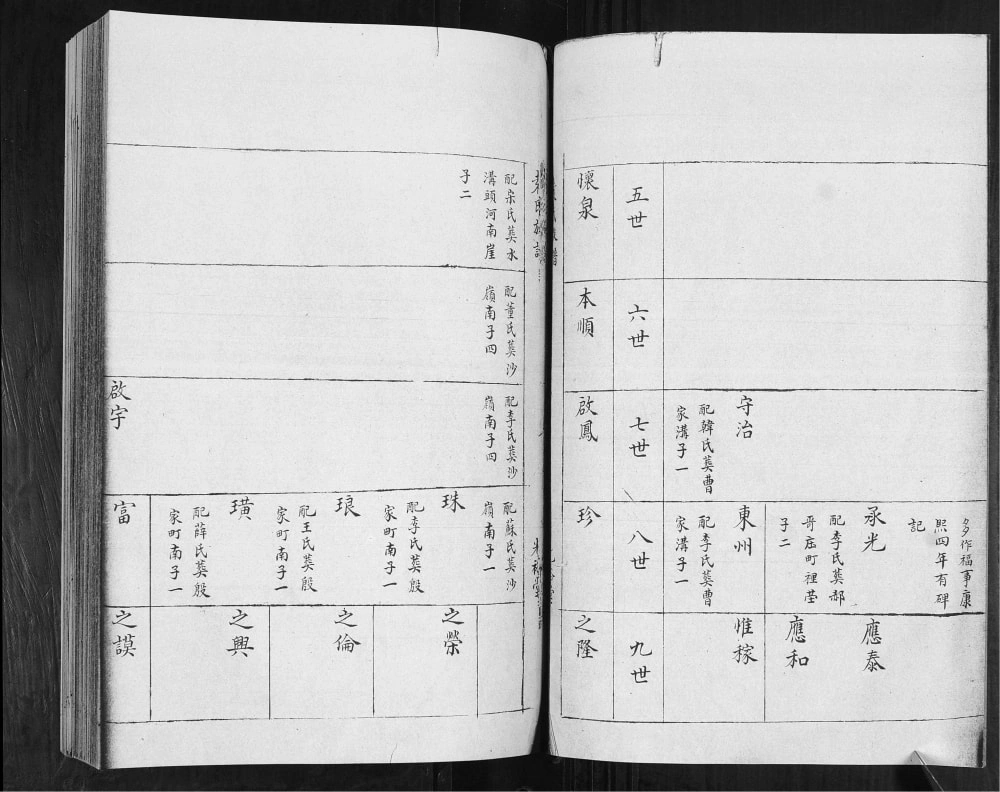 守治
配韓氏葬曹
家溝子一
多作福事康
熙四年有碑
記
承光
配李氏葬郝
哥庄町裡塋
子二
東州
配李氏葬曹
家溝子一
應泰
應和
惟稼
五世
六世
七世
八世
九世
懷泉
本順
啟鳳
珍
之隆
族譜
配宋氏葬水
溝頭河南崖
子二
配董氏葬沙
嶺南子四
配李氏葬沙
嶺南子四
啟宇
配蘇氏葬沙
嶺南子一
珠
配李氏葬殷
家町南子一
琅
配王氏葬殷
家町南子一
璜
配薛氏葬殷
家町南子一
富
之榮
之倫
之興
之謨